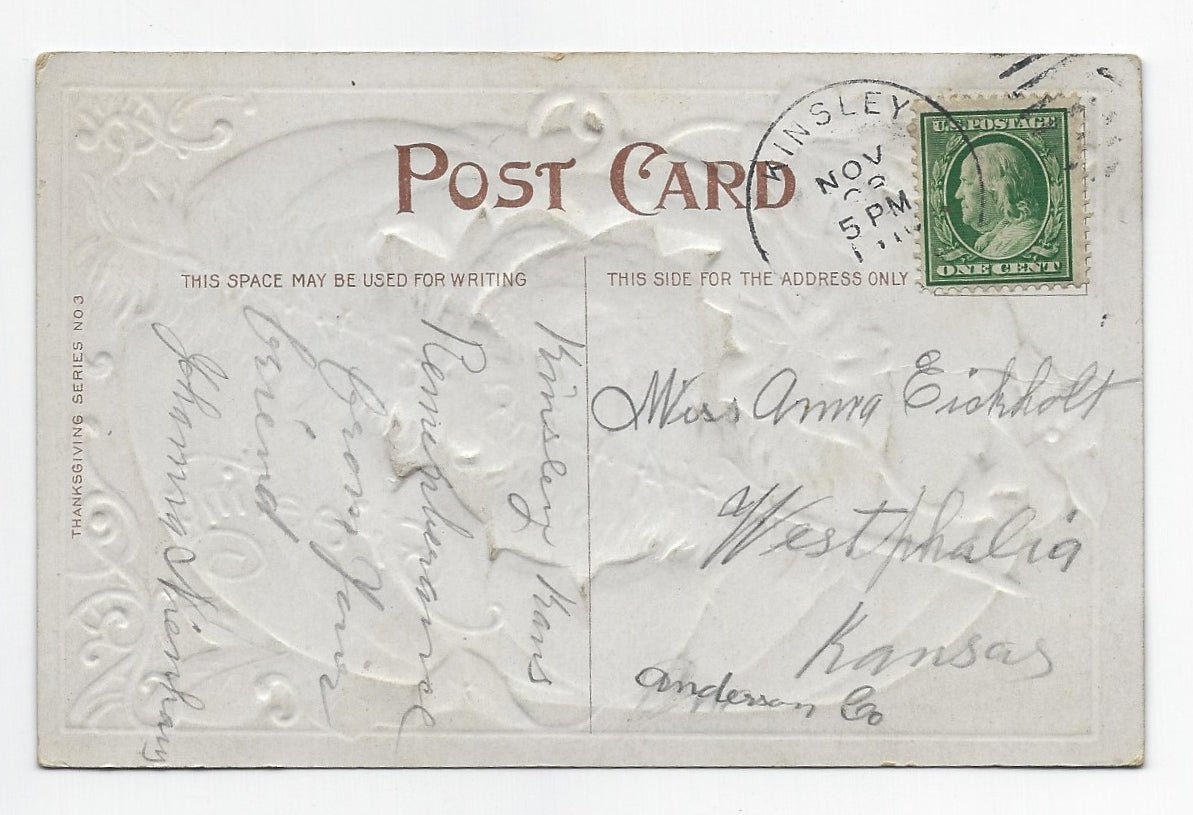 POST CARD
KINSLEY
NOV
5 PM
U.S. POSTAGE
ONE CENT
THIS SPACE MAY BE USED FOR WRITING
THIS SIDE FOR THE ADDRESS ONLY
THANKSGIVING SERIES NO 3
Kinsley Kans
from your
friend
Miss Anna Eickholt
Westphalia
Kansas
Anderson Co